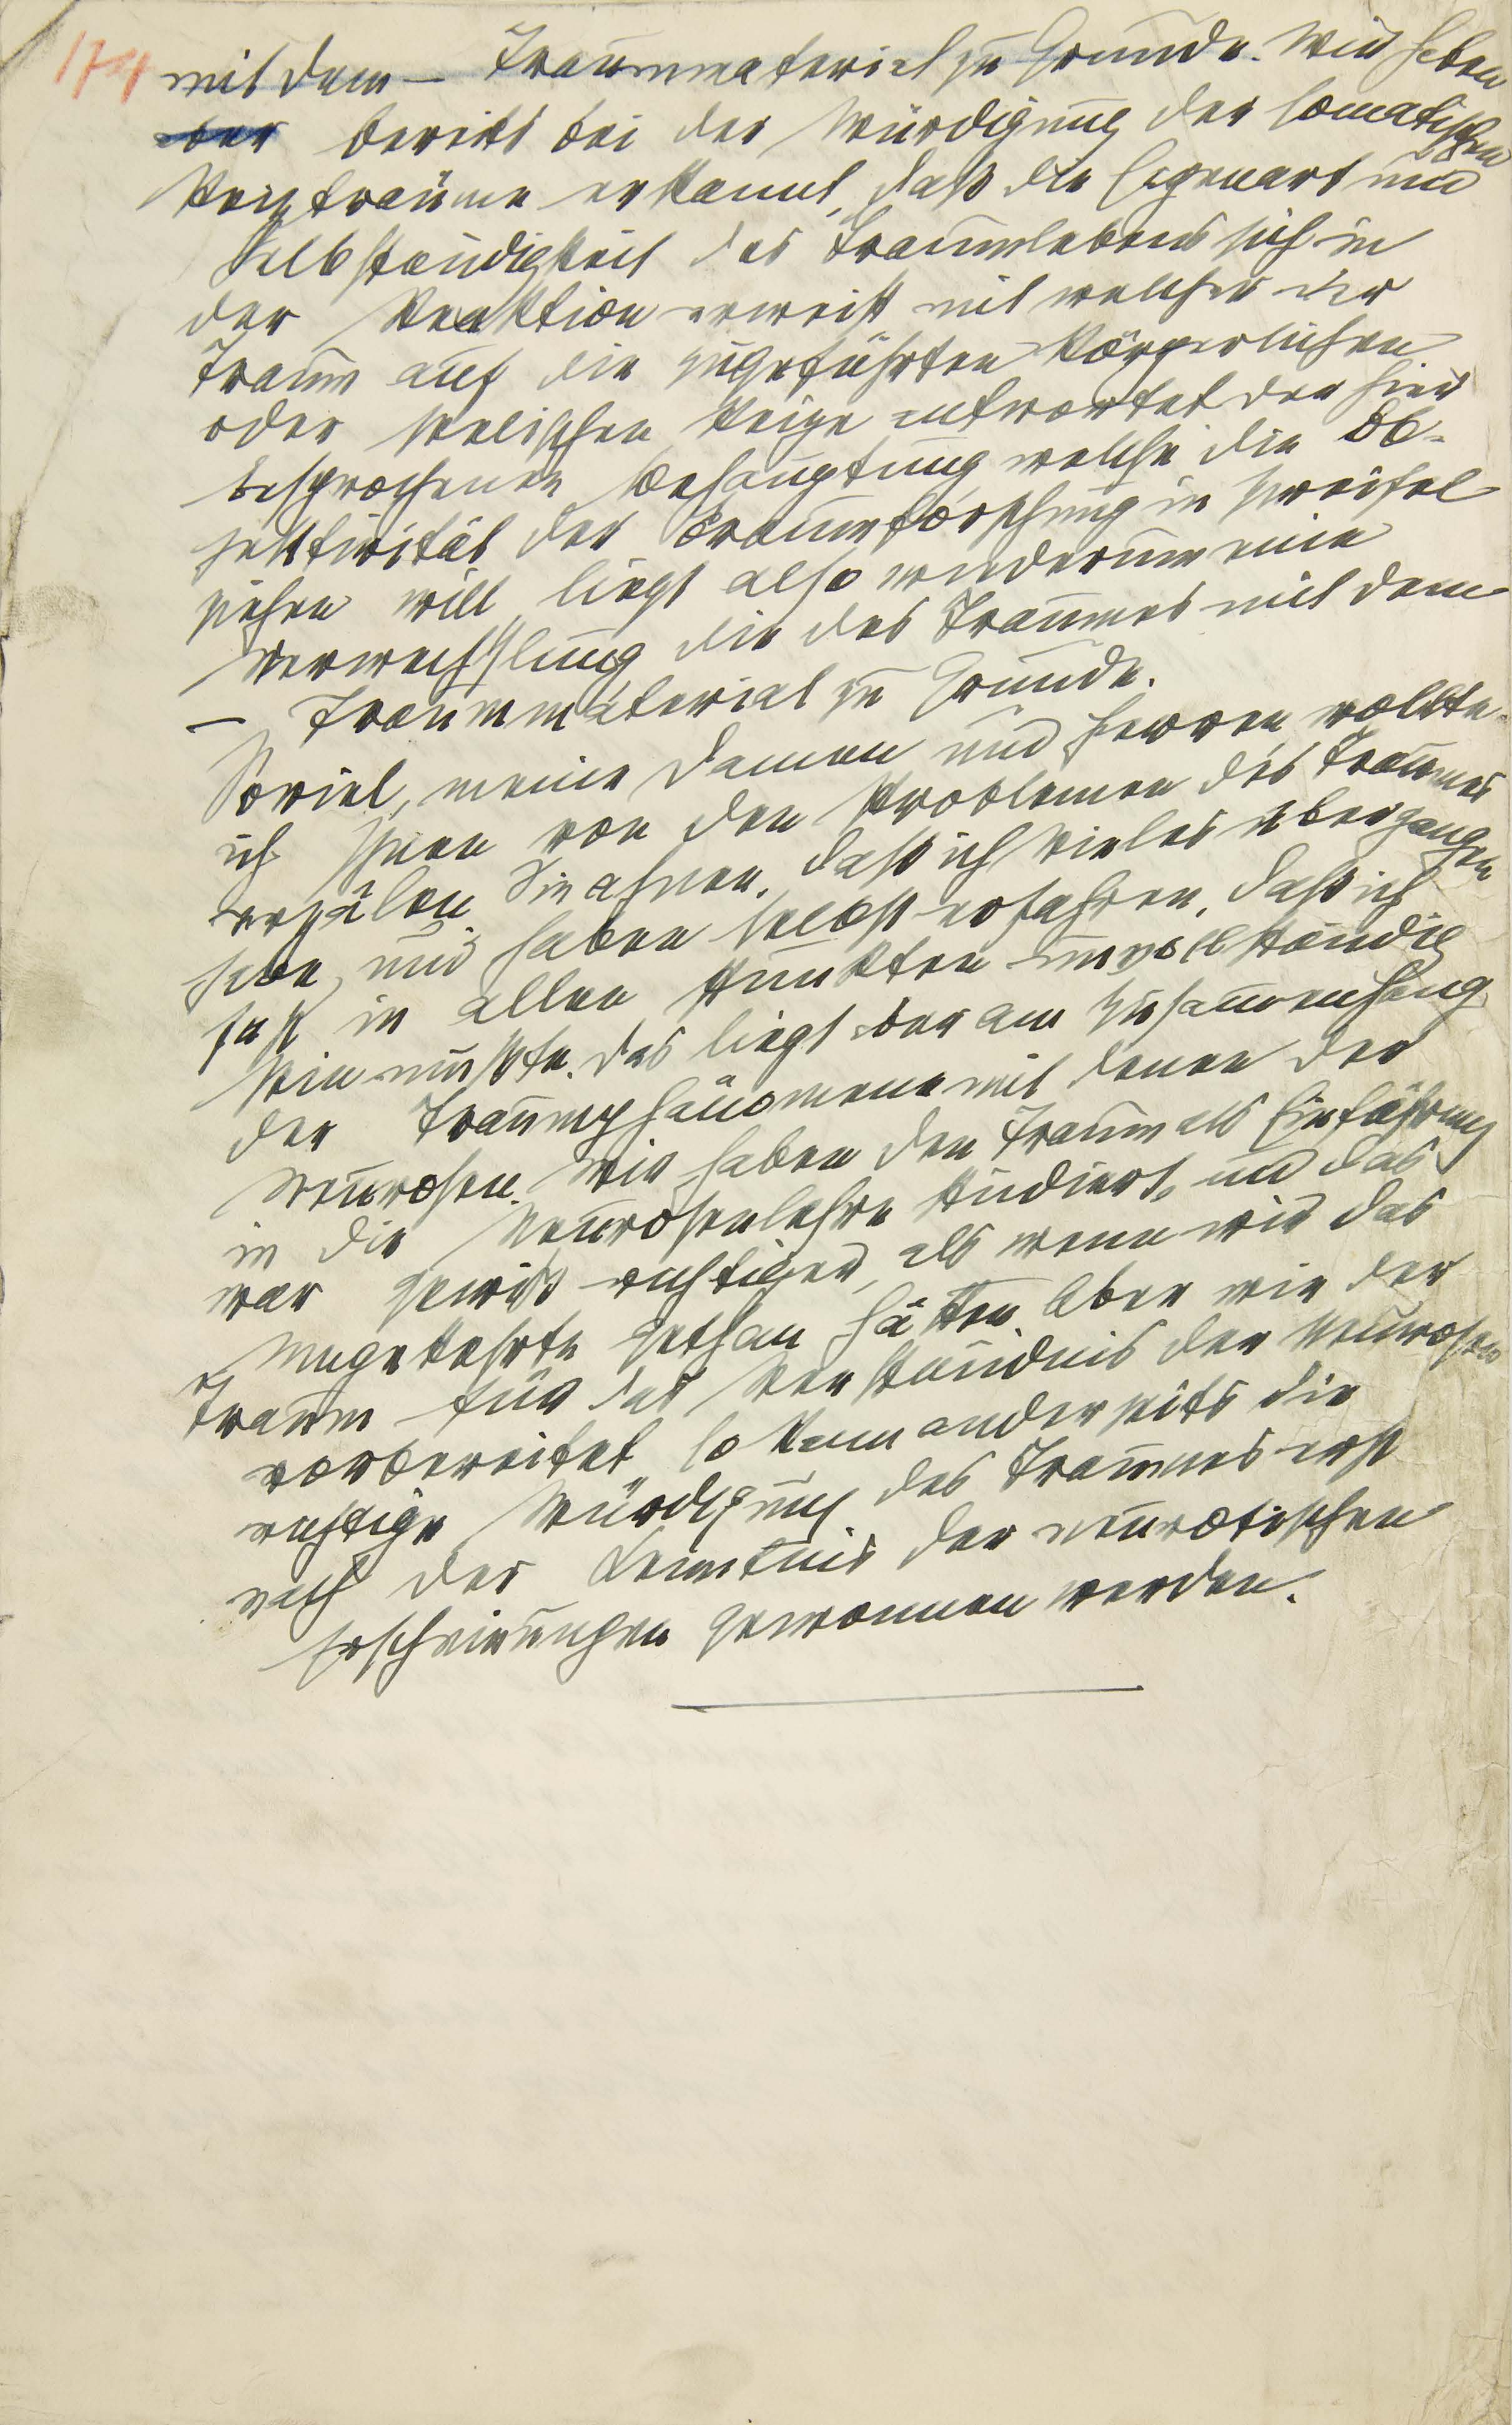 174 mit dem — Traummaterial zu Grunde. Wir haben
aber bereits bei der Würdigung der somatischen
Reizträume erkannt, daß die Eigenart und
Selbständigkeit des Traumlebens sich in
der Reaktion erweist mit welcher der
Traum auf die zugeführten körperlichen
oder seelischen Reize antwortet der hier
besprochenen Behauptung welche die Ob-
jektivität der Traumforschung in Zweifel
ziehen will liegt also wiederum eine
Verwechslung die des Traumes mit dem
— Traummaterial zu Grunde.
Soviel, meine Damen und Herren wollte
ich Ihnen von den Problemen des Traumes
erzälen. Sie ahnen, daß ich vieles übergangen
habe, und haben selbst erfahren, daß ich
fast in allen Punkten unvollständig
sein mußte. das liegt aber am Zusammenhang
der Traumphänomene mit denen der
Neurosen. Wir haben den Traum als Einführung
in die Neurosenlehre studiert, und das
war gewiß richtiger, als wenn wir das
Umgekehrte gethan hätten Aber wie der
Traum für das Verständnis der Neurosen
vorbereitet, so kann anderseits die
richtige Würdigung des Traumes erst
nach der Kenntnis der neurotischen
Erscheinungen gewonnen werden.